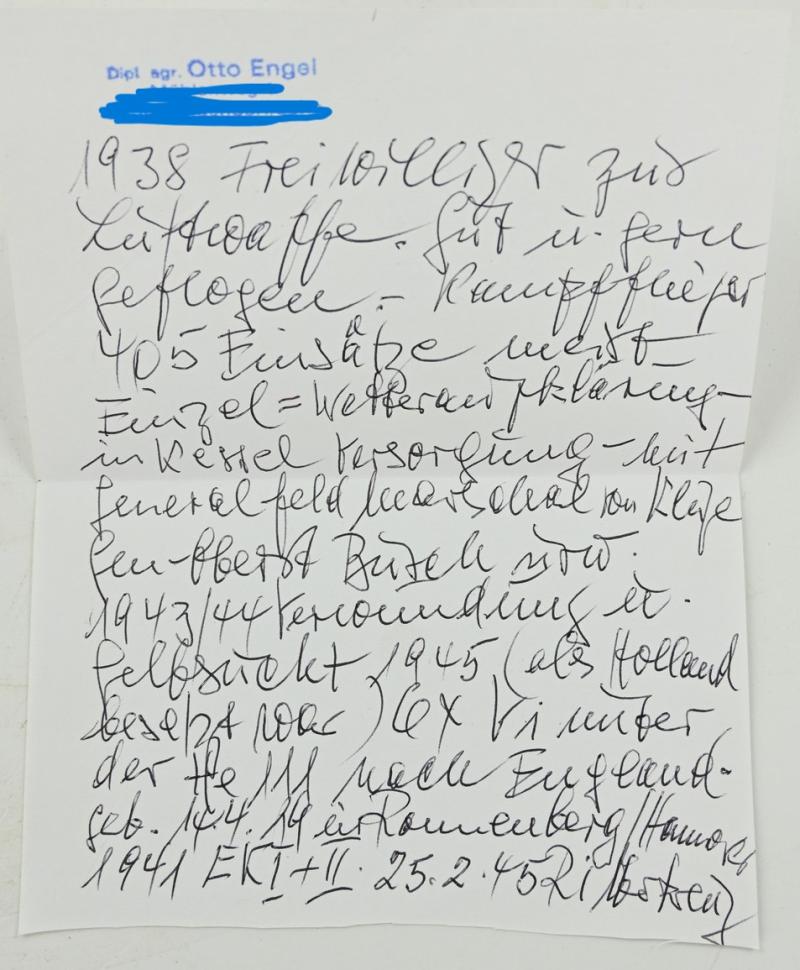 Dipl. agr. Otto Engel
1938 Freiwilliger zur
Luftwaffe. Gut u. gern
geflogen.- Kampfflieger
405 Einsätze meist
Einzel=Wetteraufklärung-
in Kessel Versorgung-mit
Generalfeldmarschal von Kluge
Gen-Oberst Busch usw.
1943/44 Verwundung u.
Gelbsucht 1945 (als Holland
besetzt war) 6x V1 unter
der He 111 nach England-
geb. 14.4.19 in Ronnenberg/Hannover
1941 EK I + II. 25.2.45 Ritterkreuz